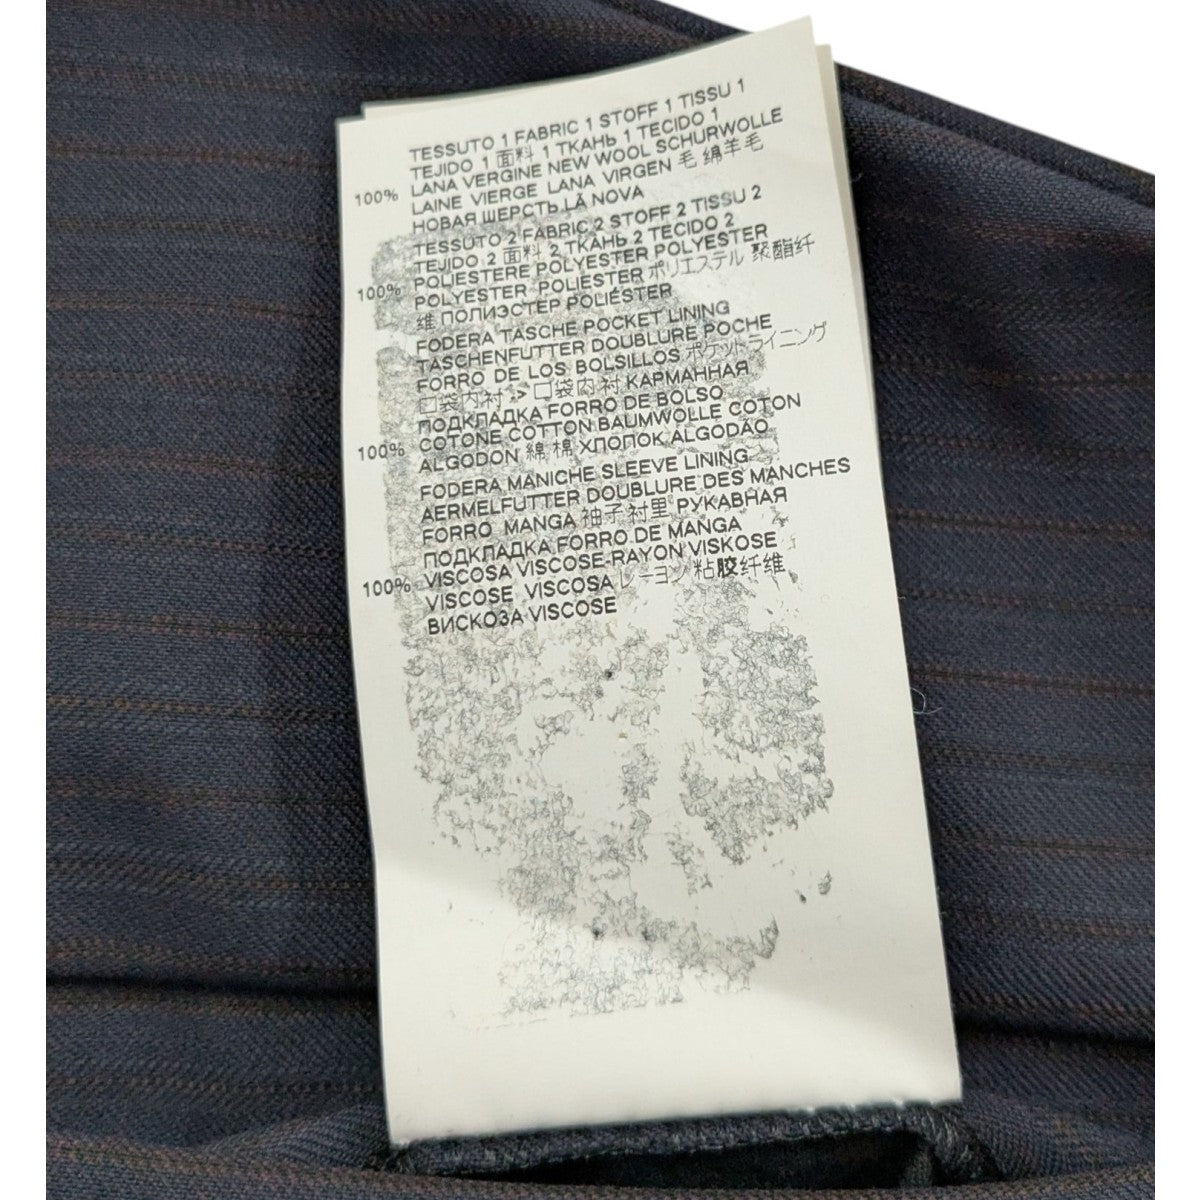 TESSUTO 1 FABRIC 1 STOFF 1 TISSU 1
TEJIDO 1 面料 1 ТКАНЬ 1 TECIDO 1
100% LANA VERGINE NEW WOOL SCHURWOLLE
LAINE VIERGE LANA VIRGEN 毛 绵羊毛
НОВАЯ ШЕРСТЬ LÃ NOVA
TESSUTO 2 FABRIC 2 STOFF 2 TISSU 2
TEJIDO 2 面料 2 ТКАНЬ 2 TECIDO 2
100% POLIESTERE POLYESTER POLYESTER
POLYESTER POLIESTER ポリエステル 聚酯纤
维 ПОЛИЭСТЕР POLIÉSTER
FODERA TASCHE POCKET LINING
TASCHENFUTTER DOUBLURE POCHE
FORRO DE LOS BOLSILLOS ポケットライニング
口袋内衬 -> 口袋内衬 КАРМАННАЯ
ПОДКЛАДКА FORRO DE BOLSO
100% COTONE COTTON BAUMWOLLE COTON
ALGODON 綿 棉 ХЛОПОК ALGODÃO
FODERA MANICHE SLEEVE LINING
AERMELFUTTER DOUBLURE DES MANCHES
FORRO MANGA 袖子衬里 РУКАВНАЯ
ПОДКЛАДКА FORRO DE MANGA
100% VISCOSA VISCOSE-RAYON VISKOSE
VISCOSE VISCOSA レーヨン 粘胶纤维
ВИСКОЗА VISCOSE